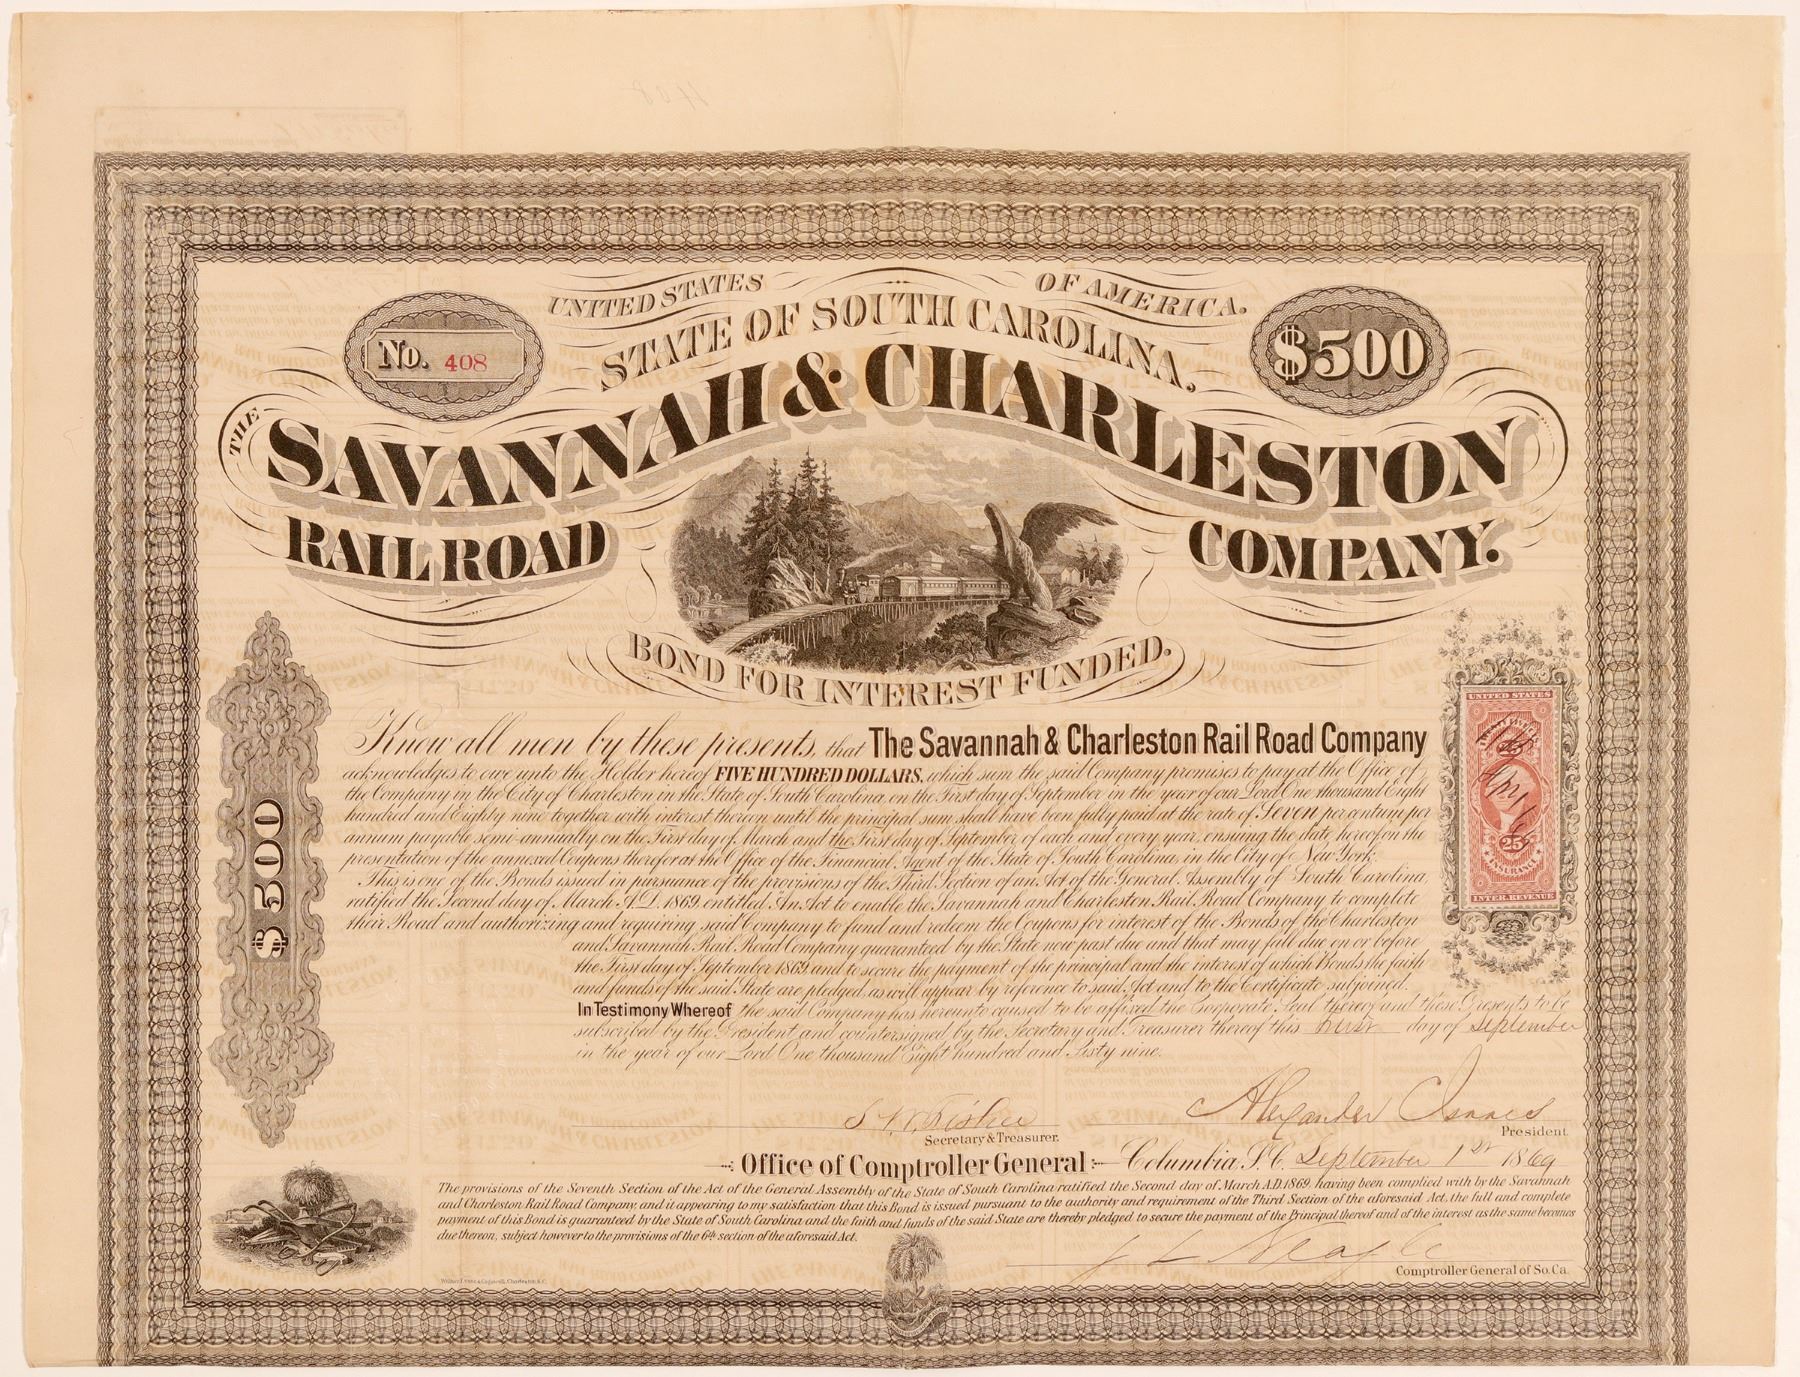 UNITED STATES OF AMERICA.
STATE OF SOUTH CAROLINA,
No. 408
$500
THE
SAVANNAH & CHARLESTON
RAIL ROAD COMPANY.
BOND FOR INTEREST FUNDED.
Know all men by these presents, that The Savannah & Charleston Rail Road Company
acknowledges to owe unto the Holder hereof FIVE HUNDRED DOLLARS, which sum the said Company promises to pay at the Office of
the Company in the City of Charleston in the State of South Carolina, on the First day of September in the year of our Lord One thousand Eight
hundred and Eighty nine together with interest thereon until the principal sum shall have been fully paid at the rate of Seven per centum per
annum payable semi-annually on the First day of March and the First day of September of each and every year, ensuing the date hereof on the
presentation of the annexed Coupons therefor at the Office of the Financial Agent of the State of South Carolina in the City of New York.
This is one of the Bonds issued in pursuance of the provisions of the Third Section of an Act of the General Assembly of South Carolina
ratified the Second day of March A.D. 1869, entitled An Act to enable the Savannah and Charleston Rail Road Company to complete
their Road and authorizing and requiring said Company to fund and redeem the Coupons for interest of the Bonds of the Charleston
and Savannah Rail Road Company guaranteed by the State now past due and that may fall due on or before
the First day of September 1869 and to secure the payment of the principal and the interest of which Bonds the faith
and funds of the said State are pledged, as will appear by reference to said Act and to the Certificate subjoined.
In Testimony Whereof the said Company has hereunto caused to be affixed the Corporate Seal thereof and these Presents to be
subscribed by the President and countersigned by the Secretary and Treasurer thereof this first day of September
in the year of our Lord One thousand Eight hundred and Sixty nine.
$500
UNITED STATES
25
25
INSURANCE
INTER. REVENUE
S. W. Fisher
Secretary & Treasurer.
Alexander Isaacs
President
Office of Comptroller General Columbia, S.C. September 1st 1869
The provisions of the Seventh Section of the Act of the General Assembly of the State of South Carolina ratified the Second day of March A.D. 1869, having been complied with by the Savannah
and Charleston Rail Road Company, and it appearing to my satisfaction that this Bond is issued pursuant to the authority and requirement of the Third Section of the aforesaid Act, the full and complete
payment of this Bond is guaranteed by the State of South Carolina and the faith and funds of the said State are thereby pledged to secure the payment of the Principal thereof and of the interest as the same becomes
due thereon, subject however to the provisions of the 6th section of the aforesaid Act.
J L Neagle
Comptroller General of So. Ca.
Walker, Evans & Cogswell, Charleston, S.C.